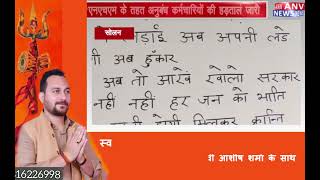 एनएचएम के तहत अनुबंध कर्मचारियों की हड़ताल जारी
ANV
NEWS
सोलन
अब अपनी लडे
अब हुँकार
अब तो आखे खोलो सरकार
नहीं नहीं हर जन को भाति
मिलकर क्रान्ति
स्व
आशीष शर्मा के साथ
16226998